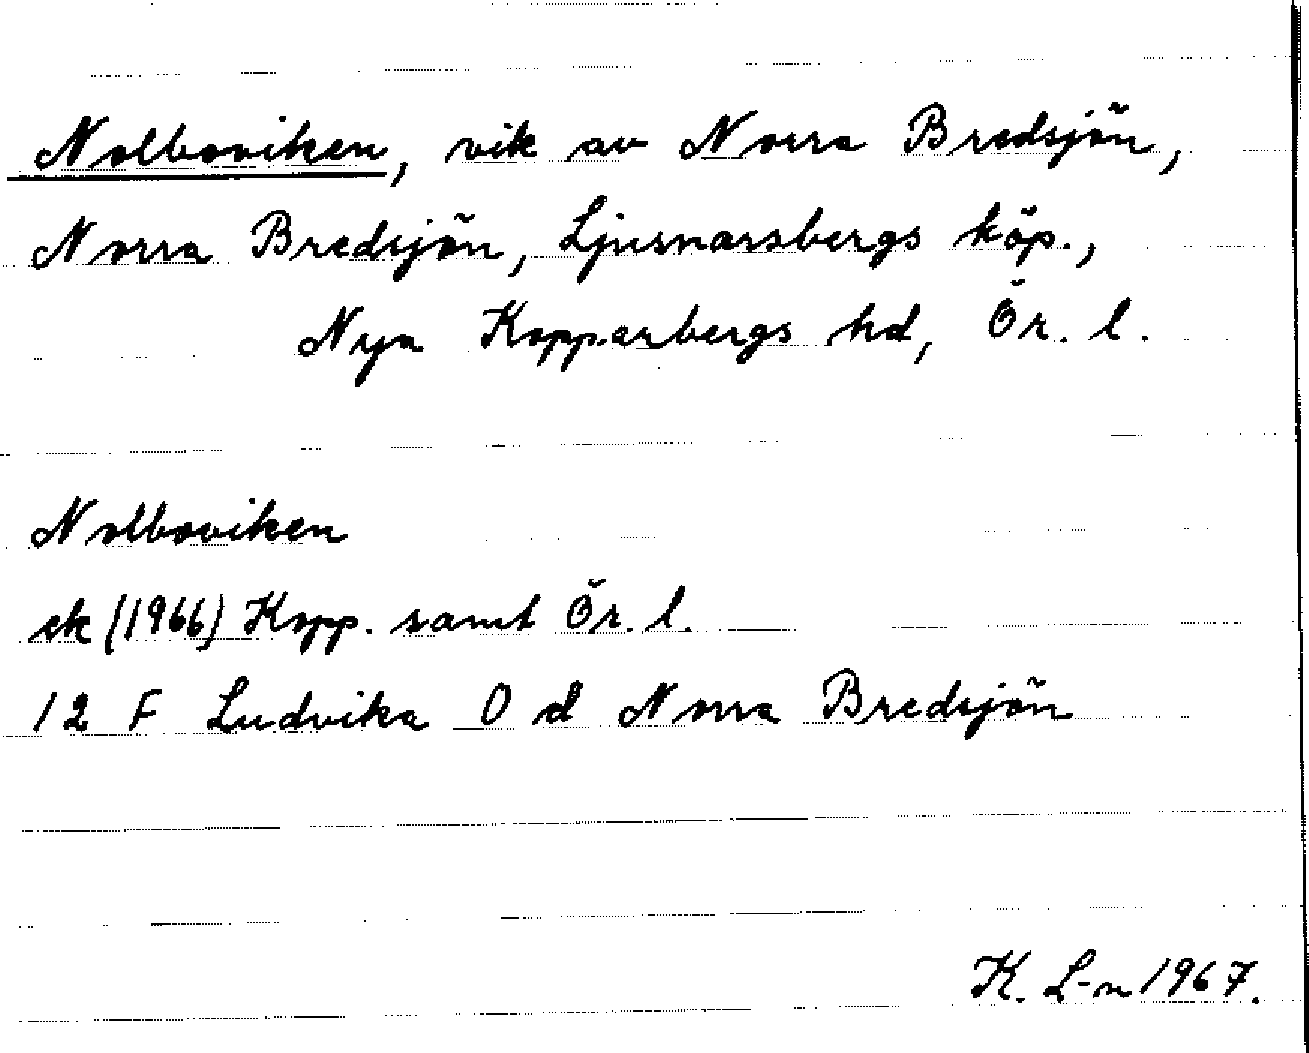 Nolboviken, vik av Norra Bredsjön,
Norra Bredsjön, Ljusnarsbergs köp.,
Nya Kopparbergs hd, Ör. l.
Nolboviken
ek (1966) Kopp. samt Ör. l.
12 F Ludvika 0 d Norra Bredsjön
K. L-n 1967.